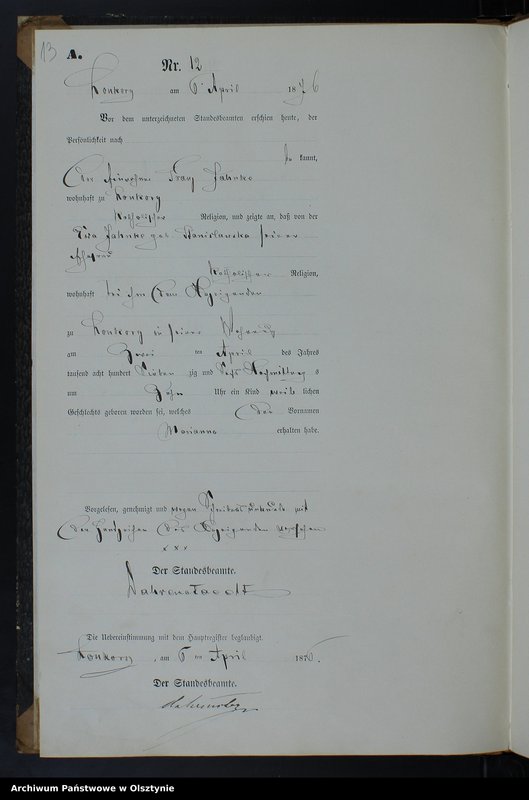 13
A.
Nr. 12
Konkorz am 6 April 1876
Vor dem unterzeichneten Standesbeamten erschien heute, der
Persönlichkeit nach
kannt,
der Franz Jahnke
wohnhaft zu Konkorz
katholischer Religion, und zeigte an, daß von der
Jahnke geb. seiner
Ehefrau
katholischer Religion,
wohnhaft bei ihm dem Anzeigenden
zu Konkorz in seiner Wohnung
am Zwei ten April des Jahres
tausend acht hundert sieben zig und sechs Nachmittag s
um Zehn Uhr ein Kind weib lichen
Geschlechts geboren worden sei, welches den Vornamen
Marianna erhalten habe.
Vorgelesen, genehmigt und wegen Schreibensunkunde mit
den Handzeichen des Anzeigenden versehen
x x x
Der Standesbeamte.
Die Uebereinstimmung mit dem Hauptregister beglaubigt.
Konkorz, am 6 ten April 1876.
Der Standesbeamte.
Archiwum Państwowe w Olsztynie